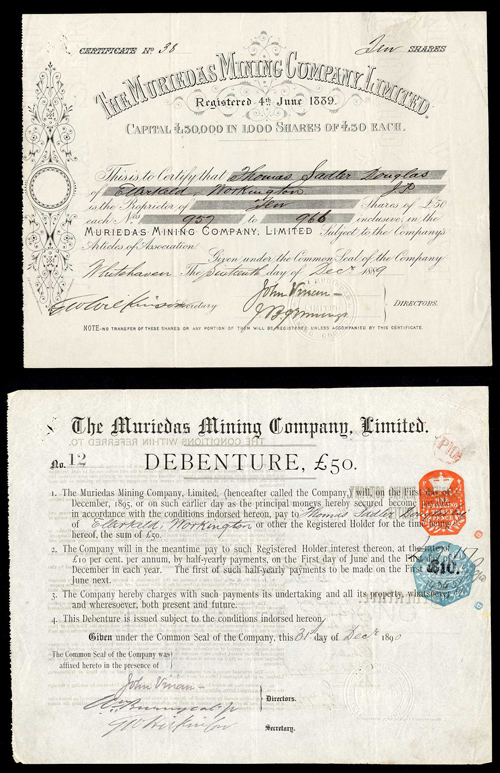 CERTIFICATE Nº 38 Ten SHARES
THE MURIEDAS MINING COMPANY, LIMITED.
Registered 4th June 1889.
CAPITAL £50,000 IN 1,000 SHARES OF £50 EACH.
This is to Certify that Thomas Sadler Douglas
of Clarkeld, Workington J.P.
is the Proprietor of Ten Shares of £50
each Nos 957 to 966 inclusive, in the
MURIEDAS MINING COMPANY, LIMITED Subject to the Company's
Articles of Association.
Given under the Common Seal of the Company
Whitehaven The Sixteenth day of Decr 1889
Secretary
John Vivian
DIRECTORS.
NOTE:-NO TRANSFER OF THESE SHARES OR ANY PORTION OF THEM WILL BE REGISTERED UNLESS ACCOMPANIED BY THIS CERTIFICATE.
The Muriedas Mining Company, Limited.
No. 12 DEBENTURE, £50.
1. The Muriedas Mining Company, Limited, (hereafter called the Company,) will, on the First day of
December, 1895, or on such earlier day as the principal moneys hereby secured become payable
in accordance with the conditions indorsed hereon, pay to Thomas Sadler
of Clarkeld, Workington or other the Registered Holder for the time being
hereof, the sum of £50.
2. The Company will in the meantime pay to such Registered Holder interest thereon, at the rate of
£10 per cent. per annum, by half-yearly payments, on the First day of June and the First day of
December in each year. The first of such half-yearly payments to be made on the First
June next.
3. The Company hereby charges with such payments its undertaking and all its property, whatsoever
and wheresoever, both present and future.
4. This Debenture is issued subject to the conditions indorsed hereon
Given under the Common Seal of the Company, this 31st day of Decr 1890
The Common Seal of the Company was
affixed hereto in the presence of
John Vivian
Directors.
Secretary.